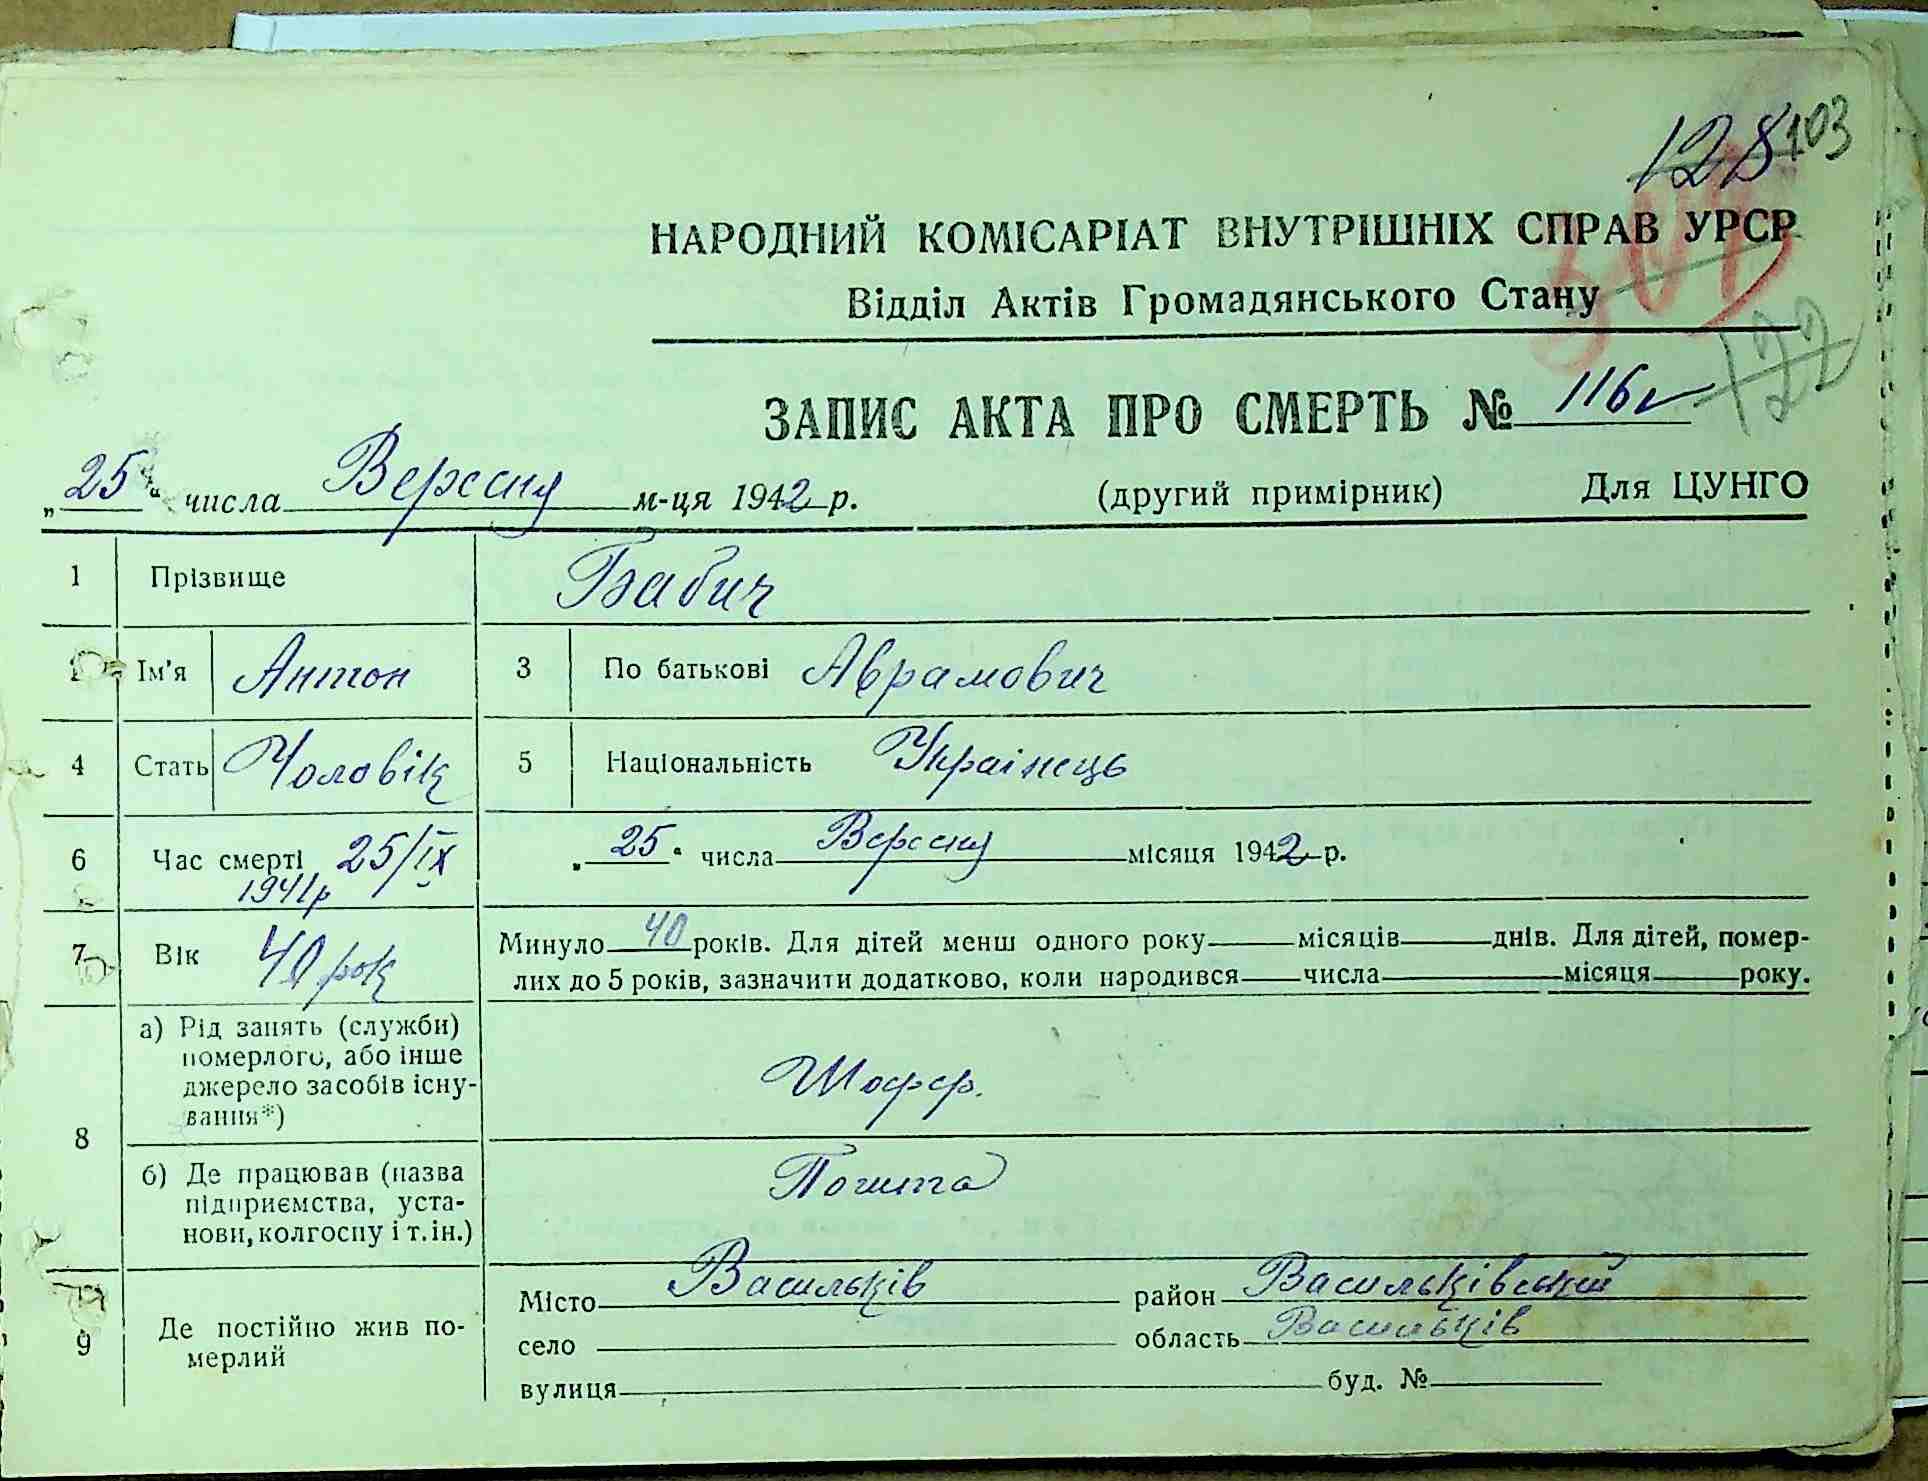 128 103
НАРОДНИЙ КОМІСАРІАТ ВНУТРІШНІХ СПРАВ УРСР
Відділ Актів Громадянського Стану
122
ЗАПИС АКТА ПРО СМЕРТЬ № 116
„25“ числа Вересня м-ця 1942 р. (другий примірник) Для ЦУНГО
1 Прізвище Бабич
2 Ім'я Антон 3 По батькові Аврамович
4 Стать Чоловік 5 Національність Украінець
6 Час смерті 25/IX 1941р „25“ числа Вересня місяця 1942 р.
7 Вік 40 рок Минуло 40 років. Для дітей менш одного року місяців днів. Для дітей, помер-
лих до 5 років, зазначити додатково, коли народився числа місяця року.
8 а) Рід занять (служби)
померлого, або інше
джерело засобів існу-
вання*)
Шофер.
б) Де працював (назва
підприємства, уста-
нови, колгоспу і т. ін.)
Пошта
9 Де постійно жив по-
мерлий
Місто Васильків район Васильківський
село область Васильків
вулиця буд. №